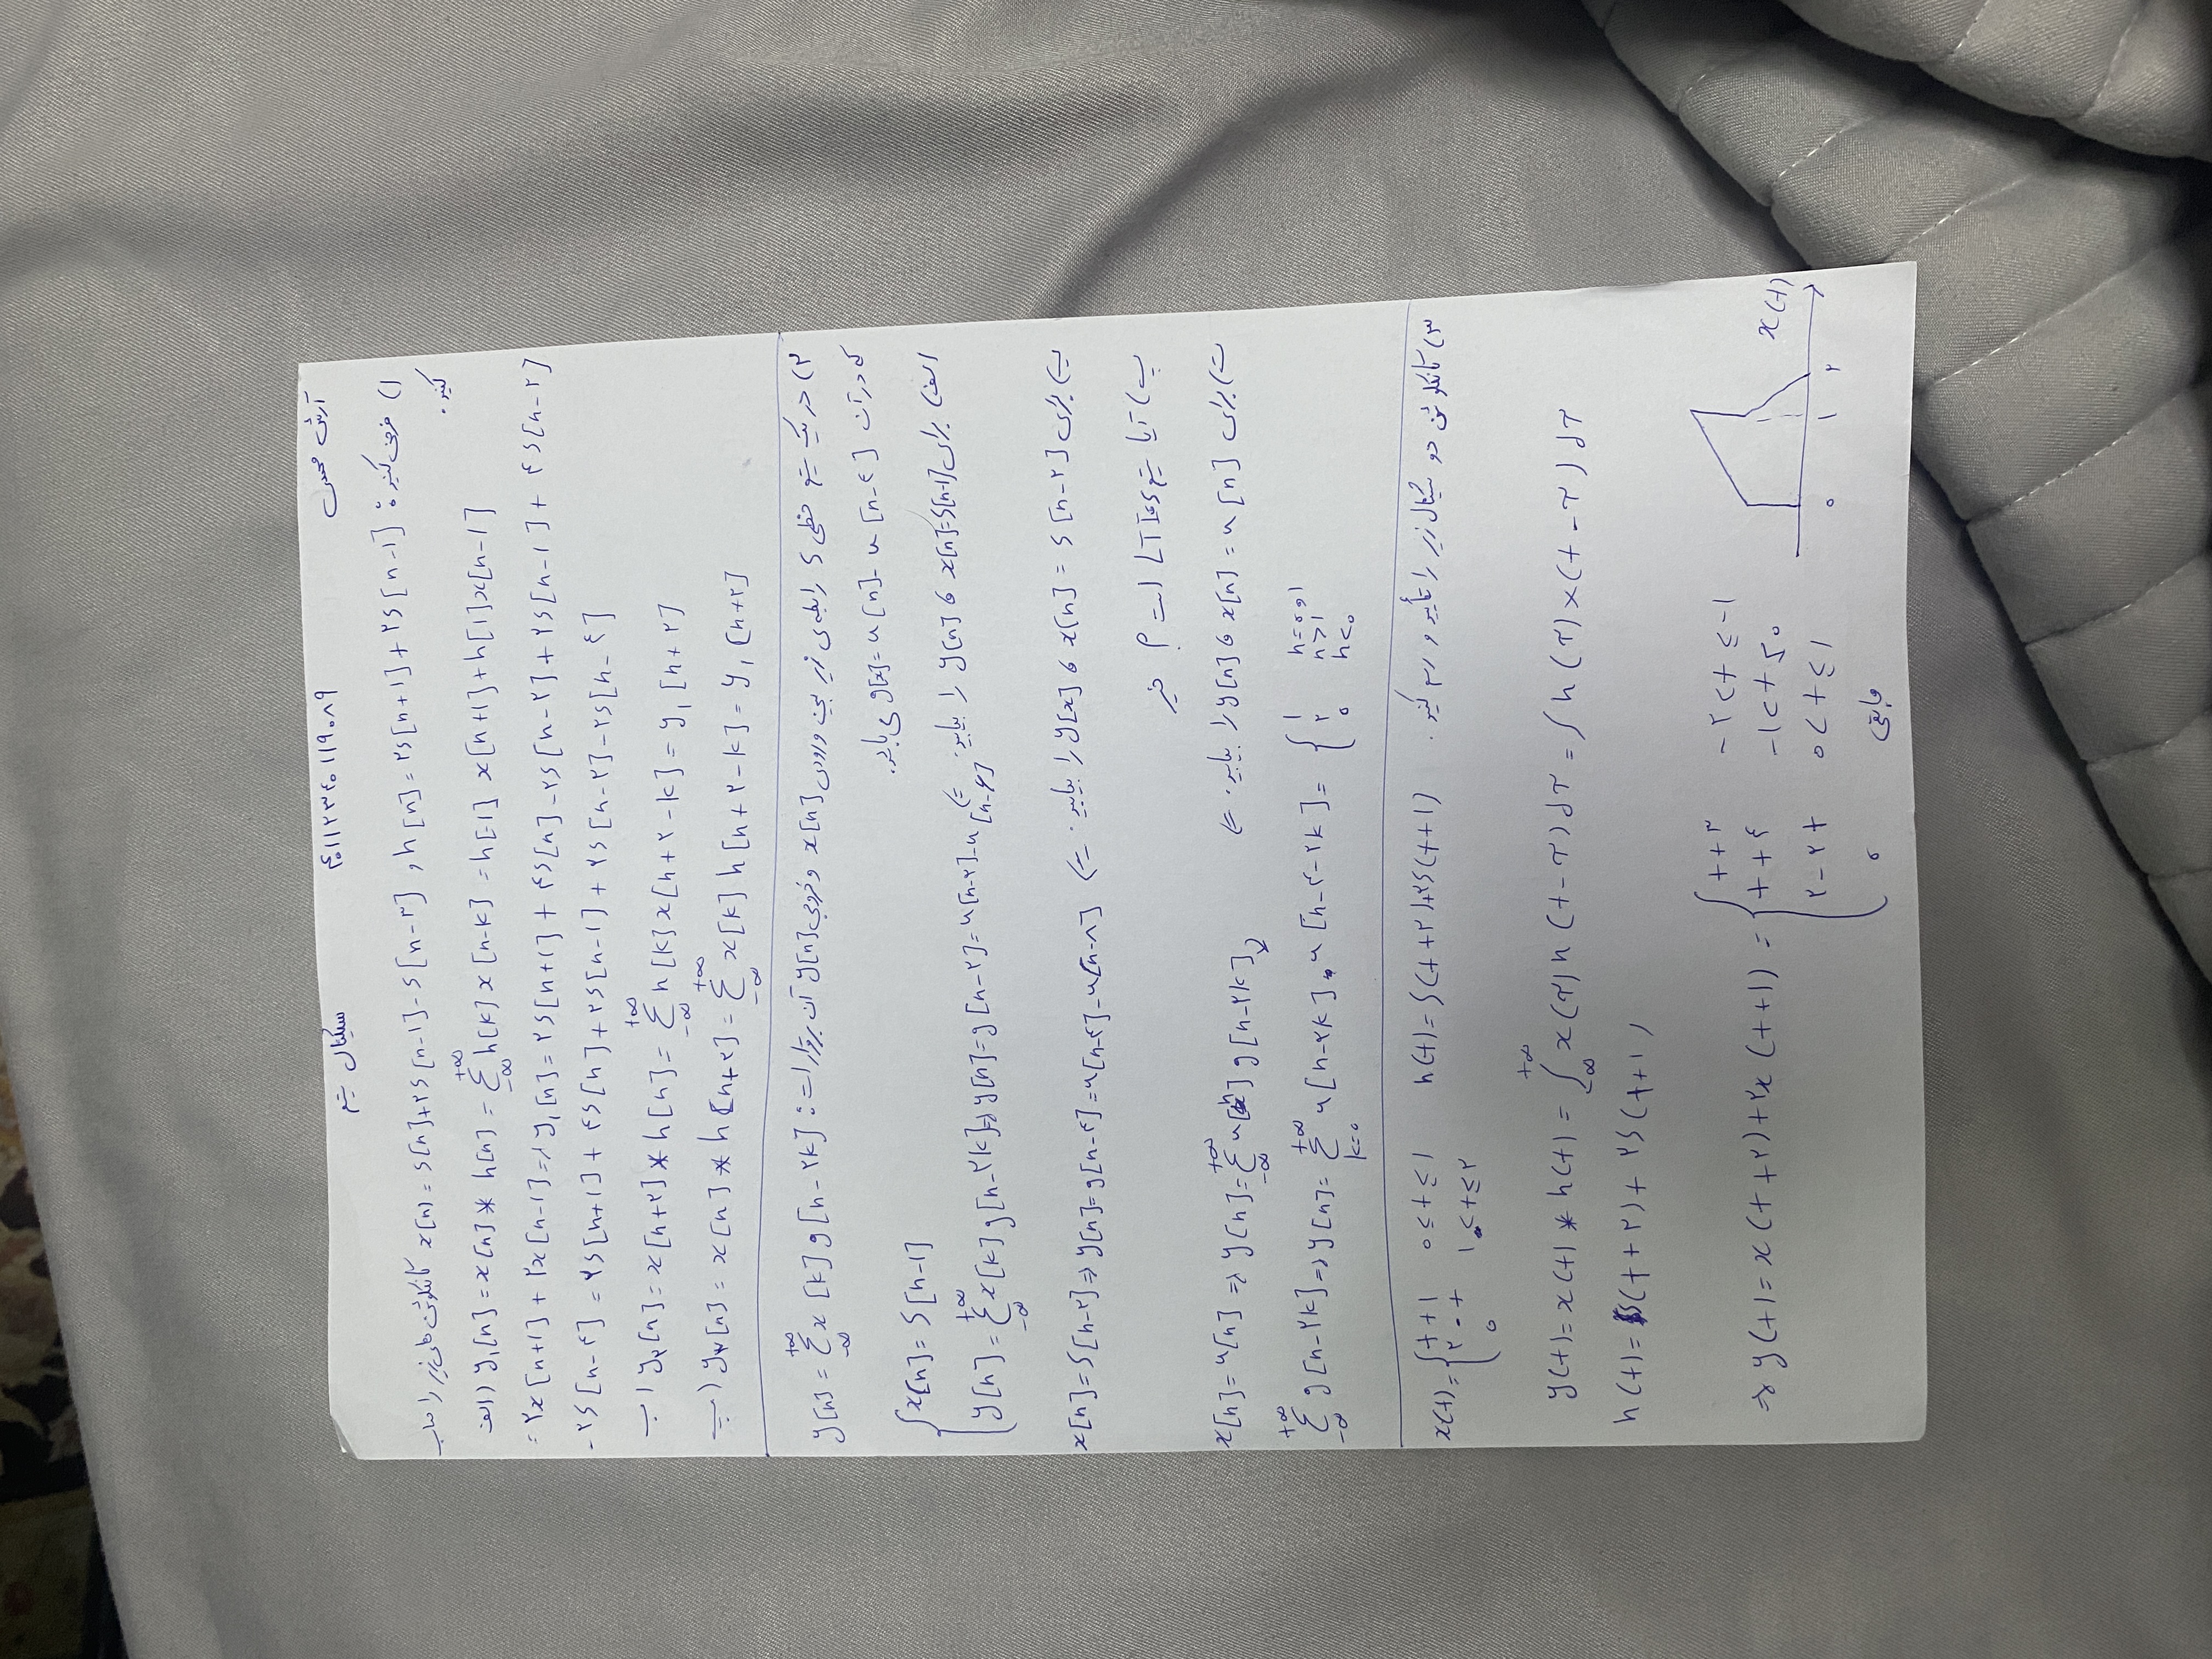 آرش محمدی ۴۰۱۱۲۳۴۰۱۱۹۰۸۹ سیگنال سیستم
۱) فرض کنید: x[n] = δ[n]+۲δ[n-۱]-δ[n-۳] , h[n] = ۲δ[n+۱]+۲δ[n-۱] کانولوشن های زیر را حساب
کنید.
الف) y₁[n] = x[n] * h[n] = Σ_{-∞}^{+∞} h[k] x[n-k] = h[-۱] x[n+۱]+h[۱]x[n-۱]
= ۲x[n+۱] + ۲x[n-۱] => y₁[n] = ۲δ[n+۱] + ۴δ[n] -۲δ[n-۲] + ۲δ[n-۱] + ۴δ[n-۲]
-۲δ[n-۴] = ۲δ[n+۱] + ۴δ[n] + ۲δ[n-۱] + ۲δ[n-۲] -۲δ[n-۴]
ب) y₂[n] = x[n+۲] * h[n] = Σ_{-∞}^{+∞} h[k] x[n+۲-k] = y₁[n+۲]
پ) y₃[n] = x[n] * h[n+۲] = Σ_{-∞}^{+∞} x[k] h[n+۲-k] = y₁[n+۲]
۲) در یک سیستم خطی S رابطه ی زیر بین ورودی x[n] و خروجی y[n] آن برقرار است: y[n] = Σ_{-∞}^{+∞} x[k] g[n-۲k]
که در آن g[x] = u[n] - u[n-۴] می باشد.
الف) برای x[n]=δ[n-۱] ، y[n] را بیابید. => { x[n] = δ[n-۱]
y[n] = Σ_{-∞}^{+∞} x[k] g[n-۲k] => y[n] = g[n-۲] = u[n-۲]-u[n-۶]
ب) برای x[n] = δ[n-۲] ، y[x] را بیابید. => x[n] = δ[n-۲] => y[n] = g[n-۴] = u[n-۴]-u[n-۸]
پ) آیا سیستم S، LTI است؟ خیر
ت) برای x[n] = u[n] ، y[n] را بیابید. => x[n] = u[n] => y[n] = Σ_{-∞}^{+∞} u[k] g[n-۲k]
Σ_{-∞}^{+∞} g[n-۲k] => y[n] = Σ_{k=۰}^{+∞} u[n-۲k] - u[n-۴-۲k] = { ۱ n=۰,۱
۲ n>۱
۰ n<۰
۳) کانولوشن دو سیگنال زیر را تأیید و رسم کنید. h(t) = δ(t+۲)+۲δ(t+۱) x(t) = { t+۱ ۰≤t≤۱
۲-t ۱<t≤۲
۰
y(t) = x(t) * h(t) = ∫_{-∞}^{+∞} x(τ) h(t-τ) dτ = ∫ h(τ) x(t-τ) dτ
h(t) = δ(t+۲) + ۲δ(t+۱)
=> y(t) = x(t+۲)+۲x(t+۱) = { t+۳ -۲<t≤-۱
t+۴ -۱<t≤۰
۲-۲t ۰<t≤۱
۰ مابقی
x(t)
۰ ۱ ۲